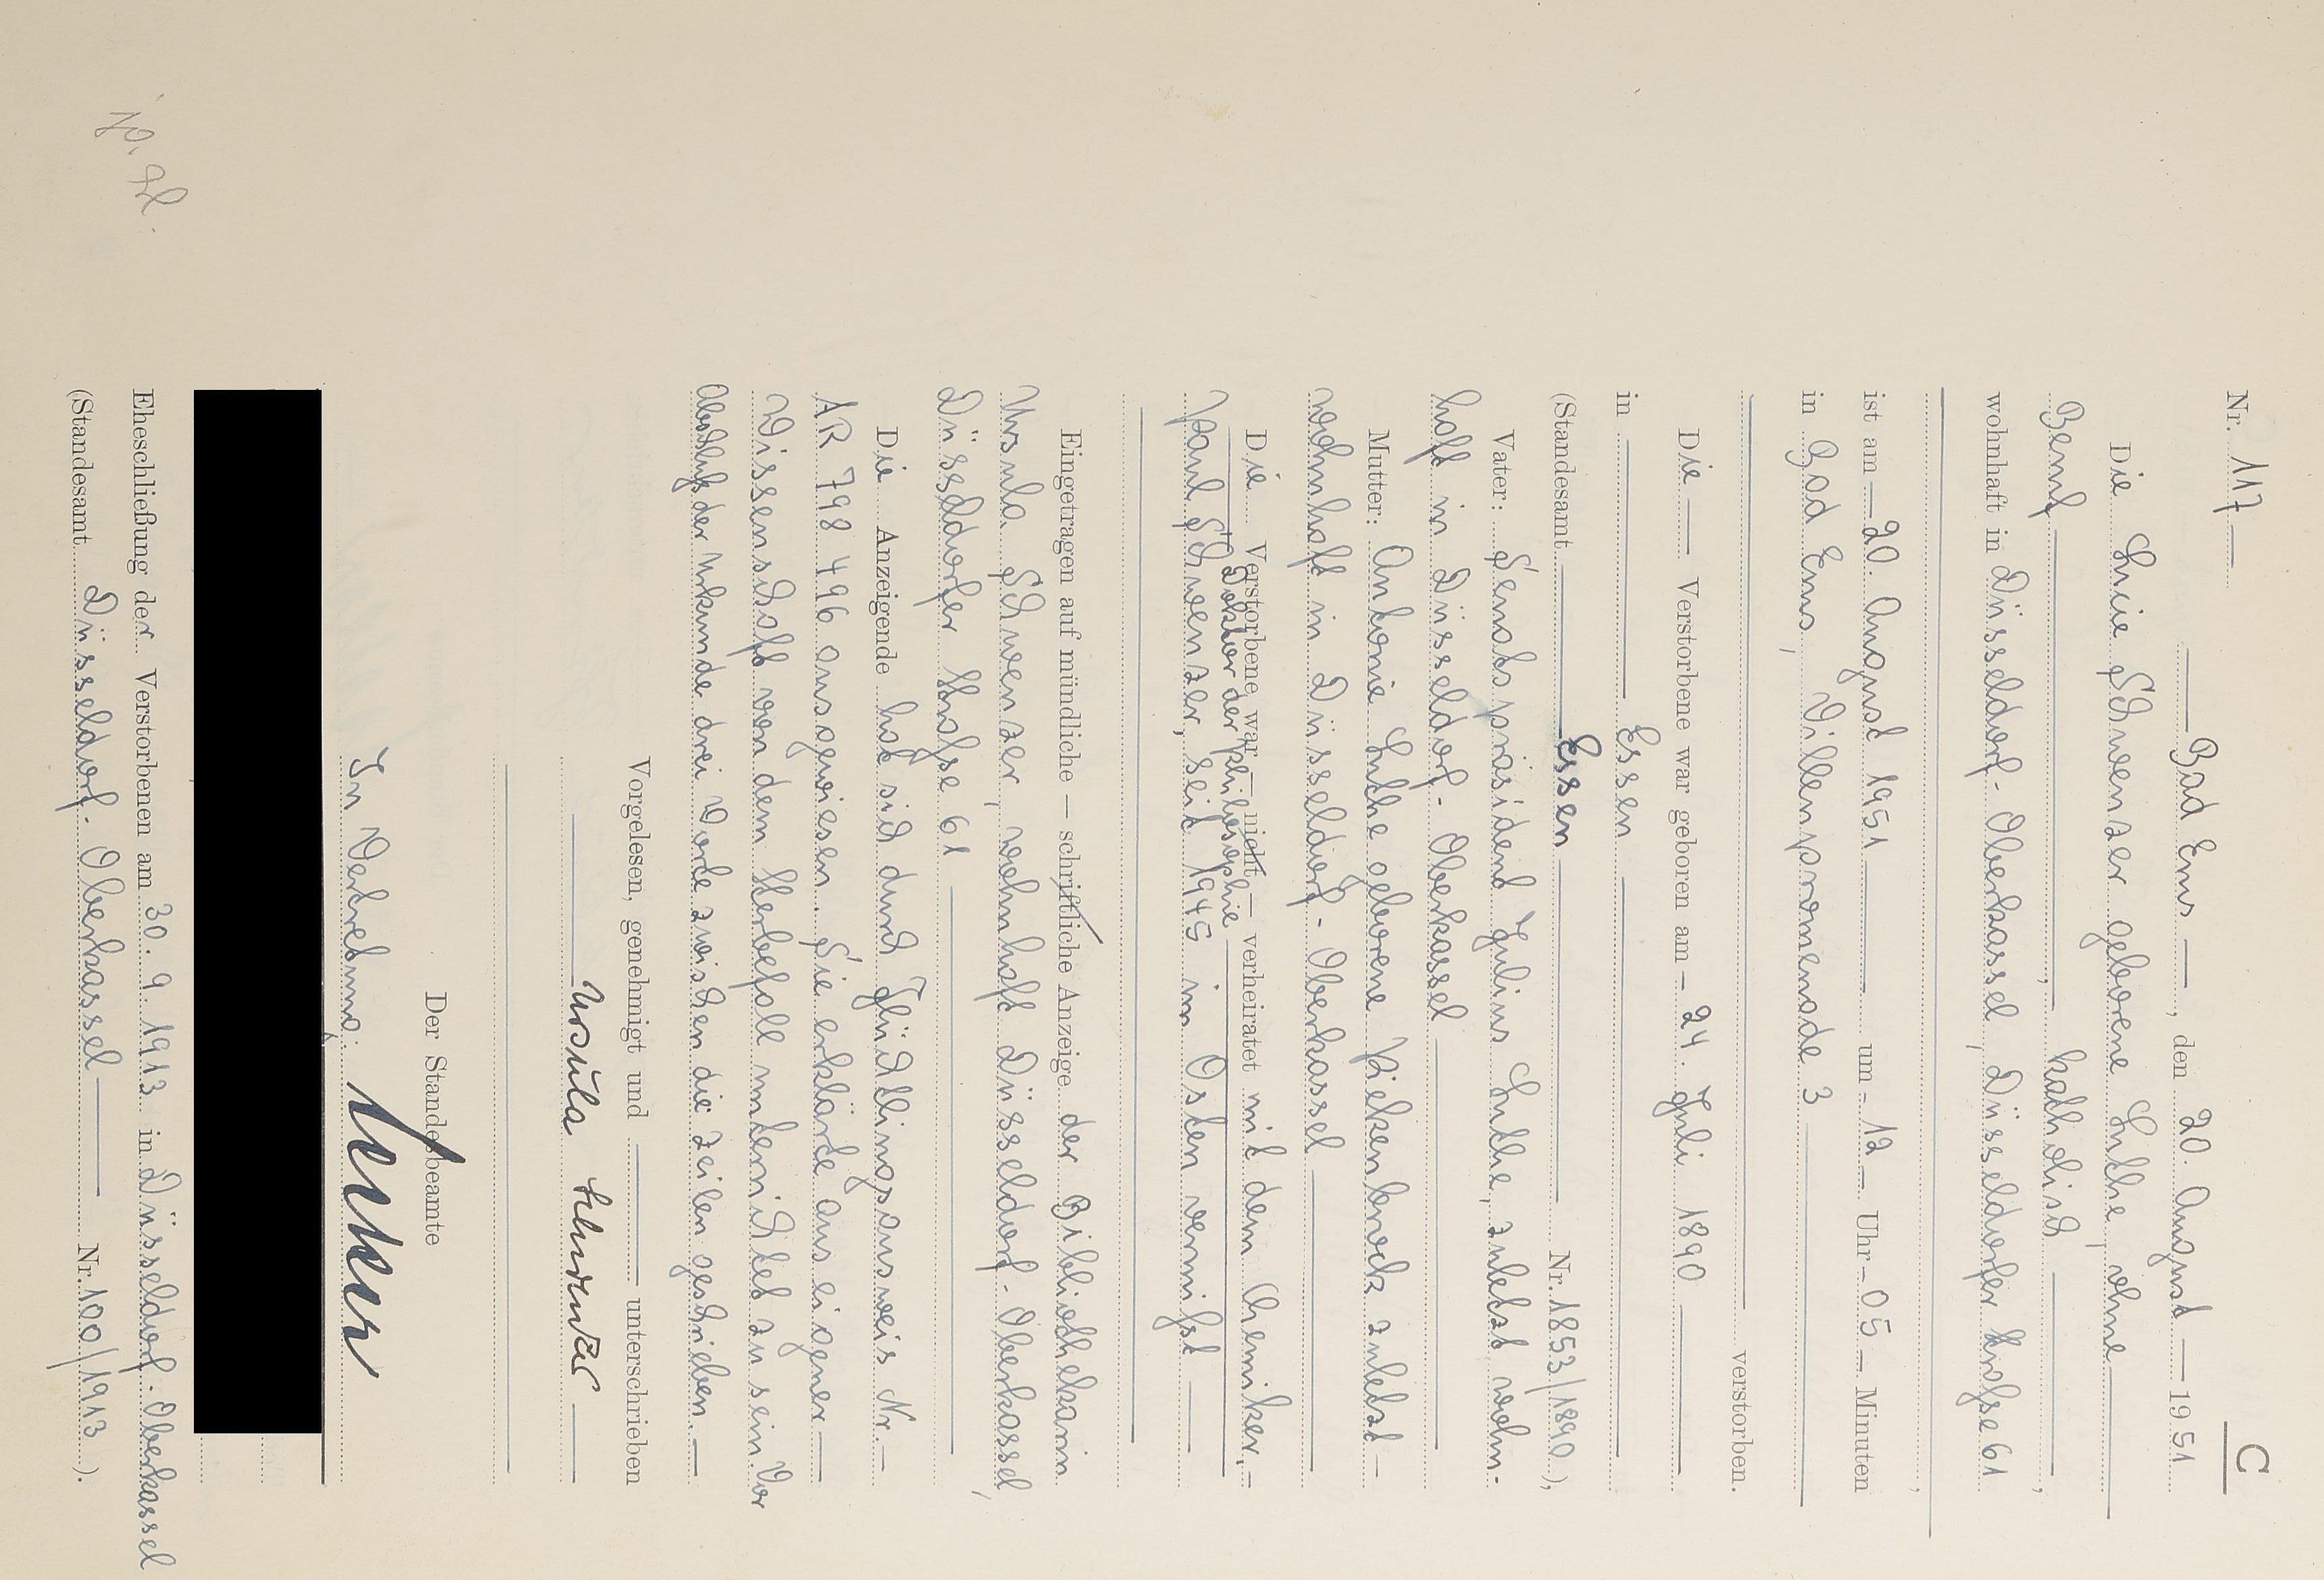 C
Nr. 117 —
— Bad Ems —, den 20. August — 1951
Die Lucie Schwenzer geborene Luthe, ohne —
Beruf —, katholisch —,
wohnhaft in Düsseldorf-Oberkassel, Düsseldorfer Straße 61
—,
ist am — 20. August 1951 — um — 12 — Uhr — 05 — Minuten
in Bad Ems, Villenpromenade 3 —
— verstorben.
Die — Verstorbene war geboren am — 24. Juli 1890 —
in — Essen —
(Standesamt — Essen — Nr. 1853/1890),
Vater: Senatspräsident Julius Luthe, zuletzt wohn-
haft in Düsseldorf-Oberkassel —
Mutter: Antonie Luthe geborene Piekenbrock zuletzt —
wohnhaft in Düsseldorf-Oberkassel —
Die Verstorbene war — nicht — verheiratet mit dem Chemiker, —
Doktor der Philosophie —
Paul Schwenzer, seit 1945 im Osten vermißt —
Eingetragen auf mündliche — schriftliche Anzeige der Bibliothekarin
Ursula Schwenzer, wohnhaft Düsseldorf-Oberkassel,
Düsseldorfer Straße 61 —
Die Anzeigende hat sich durch Flüchtlingsausweis Nr. —
AR 798 496 ausgewiesen. Sie erklärte aus eigener —
Wissenschaft von dem Sterbefall unterrichtet zu sein. Vor
Abschluß der Urkunde drei Worte zwischen die Zeilen geschrieben. —
Vorgelesen, genehmigt und — unterschrieben
— Ursula Schwenzer —
Der Standesbeamte
In Vertretung:
Eheschließung der Verstorbenen am 30. 9. 1913 in Düsseldorf-Oberkassel
(Standesamt Düsseldorf-Oberkassel — Nr. 100/1913).